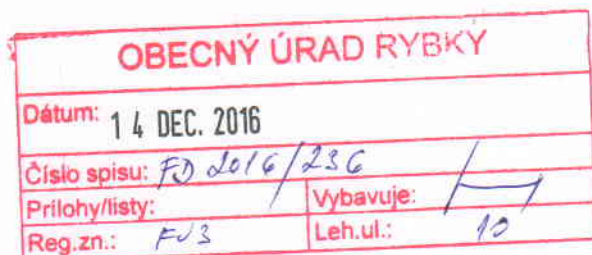 OBECNÝ ÚRAD RYBKY
Dátum: 14 DEC. 2016
Číslo spisu: FD 2016/236
Prílohy/listy: Vybavuje:
Reg.zn.: FJ3 Leh.ul.: 10